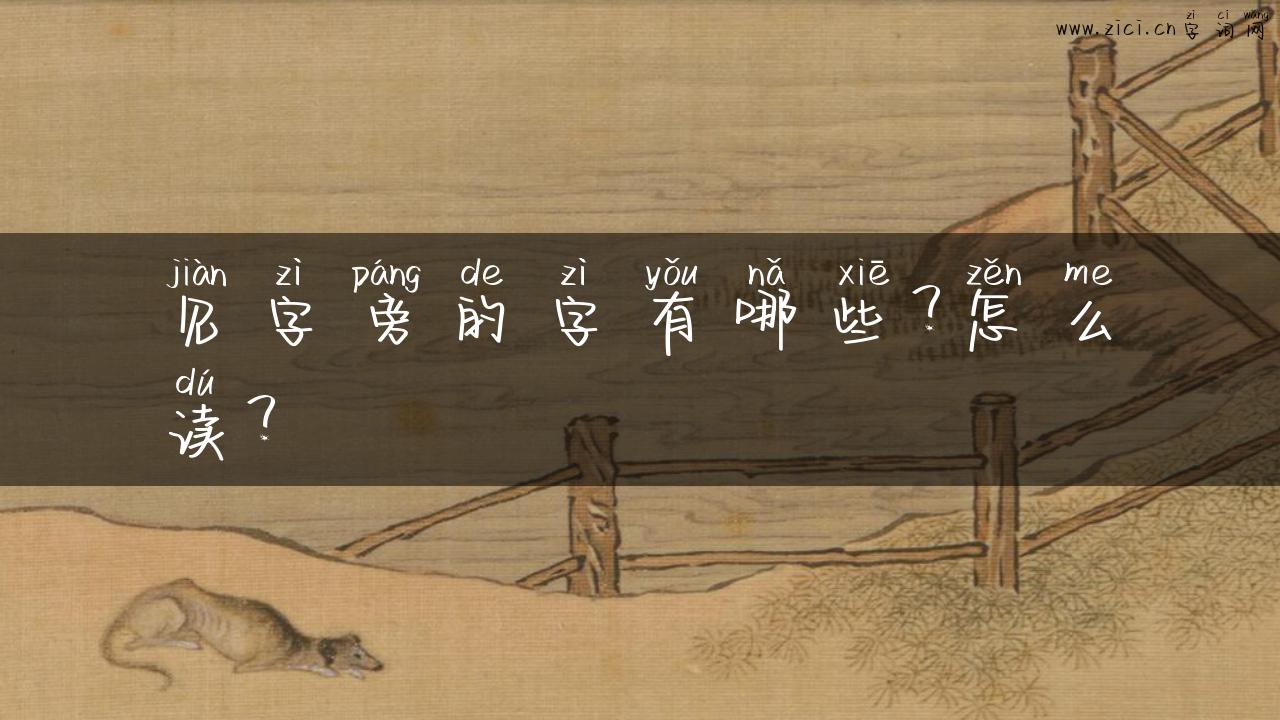 zì cí wǎng
www.zici.cn字词网
jiàn zì páng de zì yǒu nǎ xiē zěn me
见字旁的字有哪些？怎么
dú
读？